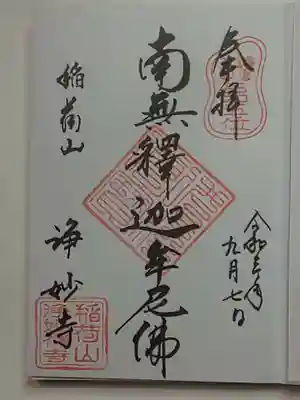 奉拝
令和三年
九月七日
南無釋迦牟尼佛
稲荷山
浄妙寺
稲荷山
浄妙寺